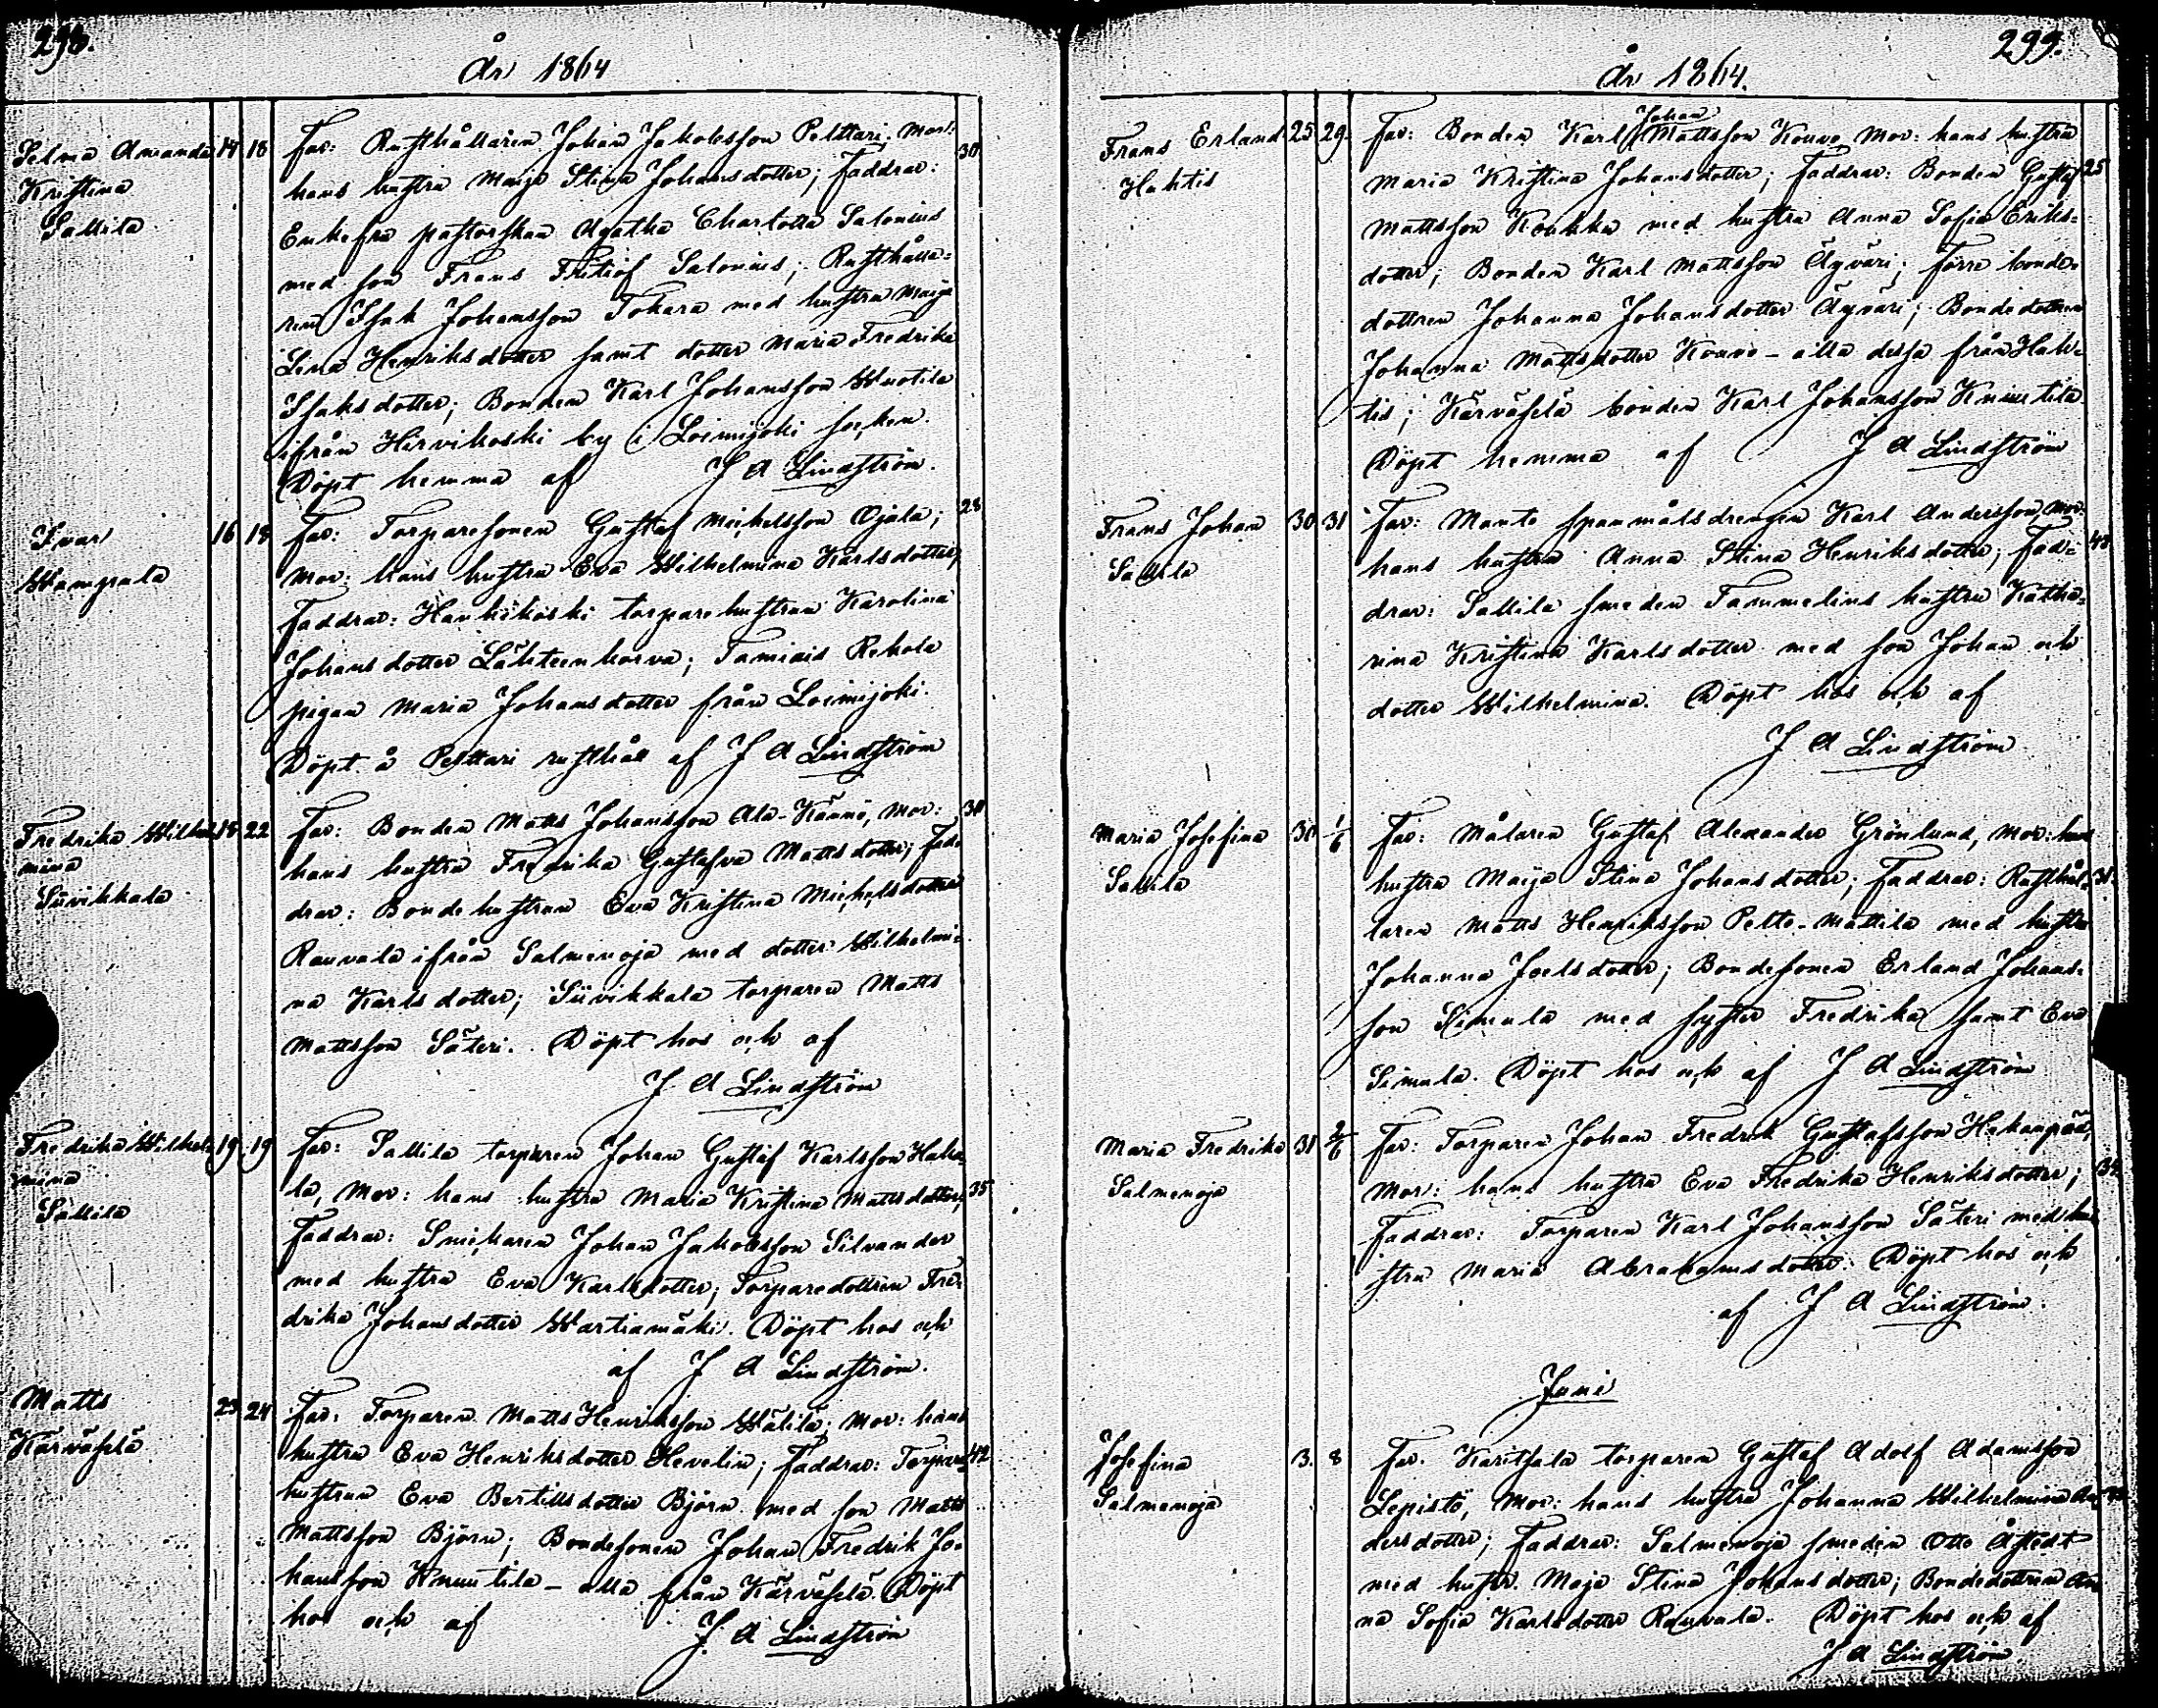 298.
År 1864
Selma Amanda 14 18 Far: Rusthållaren Johan Jakobsson Pelttari; Mor: 30
Kristina hans hustru Maija Stina Johansdotter; Faddrar:
Sallila Enkefru pastorskan Agatha Charlotta Salonius
med son Frans Fritiof Salonius; Rusthålla-
ren Isak Johansson Tokara med hustru Maija
Lena Henriksdotter samt dotter Maria Fredrika
Isaksdotter; Bonden Karl Johansson Wuotila
ifrån Hirvikoski by i Loimijoki socken.
Döpt hemma af J A Lindström.
Ivar 16 18 Far: Torparesonen Gustaf Michelsson Ojala; 28
Wampula Mor: hans hustru Eva Wilhelmina Karlsdotter;
Faddrar: Hanhikoski torparehustrun Karolina
Johansdotter Lähteenkorva; Tamiais Rekola
pigan Maria Johansdotter från Loimijoki.
Döpt å Pelttari rusthåll af J A Lindström
Fredrika Wilhel- 18 22 Far: Bonden Matts Johansson Ala-Känni, Mor: 30
mina hans hustru Fredrika Gustafva Mattsdotter; Fad-
Siivikkala drar: Bondehustrun Eva Kristina Michelsdotter
Rauvala ifrån Salmenoja med dotter Wilhelmi-
na Karlsdotter; Siivikkala torparen Matts
Mattsson Säteri. Döpt hos och af
J A Lindström
Fredrika Wilhel- 19 19 Far: Sallila torparen Johan Gustaf Karlsson Haka-
mina la, Mor: hans hustru Maria Kristina Mattsdotter; 35
Sallila Faddrar: Snickaren Johan Jakobsson Silvander
med hustru Eva Karlsdotter; Torparedottren Fre-
drika Johansdotter Wartiamäki. Döpt hos och
af J A Lindström.
Matts 23 24 Far: Torparen Matts Henriksson Wälilä; Mor: hans
Kärväselä hustru Eva Henriksdotter Hevelin; Faddrar: Torpare- 42
hustrun Eva Bertillsdotter Björn med son Matts
Mattsson Björn; Bondesonen Johan Fredrik Jo-
hansson Knuutila - alla från Kärväselä. Döpt
hos och af J A Lindström
299.
År 1864.
Frans Erland 25 29. Far: Bonden Karl Johan Mattsson Kouvo, Mor: hans hustru
Hahtis Maria Kristina Johansdotter; Faddrar: Bonden Gustaf 25
Mattsson Koukka med hustru Anna Sofia Eriks-
dotter; Bonden Karl Mattsson Äyväri; förra bonde-
dottren Johanna Johansdotter Äyväri; Bondedottren
Johanna Mattsdotter Kouvo - alla dessa från Hah-
tis; Kärväselä bonden Karl Johansson Knuutila
Döpt hemma af J A Lindström
Frans Johan 30 31 Far: Manto spanmålsdrengen Karl Andersson, Mor:
Sallila hans hustru Anna Stina Henriksdotter; Fad- 40
drar: Sallila smeden Tammelins hustru Katha-
rina Kristina Karlsdotter med son Johan och
dotter Wilhelmina. Döpt hos och af
J A Lindström
Maria Josefina 30 1/6 Far: Målaren Gustaf Alexander Grönlund, Mor: hans
Sallila hustru Maija Stina Johansdotter; Faddrar: Rusthål- 31.
laren Matts Henriksson Pelto-Mattila med hustru
Johanna Joelsdotter; Bondesonen Erland Johans-
son Simula med syster Fredrika samt Eva
Simula. Döpt hos och af J A Lindström
Maria Fredrika 31 2/6 Far: Torparen Johan Fredrik Gustafsson Hakanpää,
Salmenoja Mor: hans hustru Eva Fredrika Henriksdotter; 34
Faddrar: Torparen Karl Johansson Säteri med hu-
stru Maria Abrahamsdotter. Döpt hos och
af J A Lindström.
Juni
Josefina 3. 8 Far: Karitsala torparen Gustaf Adolf Adamsson
Salmenoja Lepistö, Mor: hans hustru Johanna Wilhelmina An-
dersdotter; Faddrar: Salmenoja smeden Otto Åstedt
med hustr. Maja Stina Johansdotter; Bondedottren An-
na Sofia Karlsdotter Rauvala. Döpt hos och af
J A Lindström.